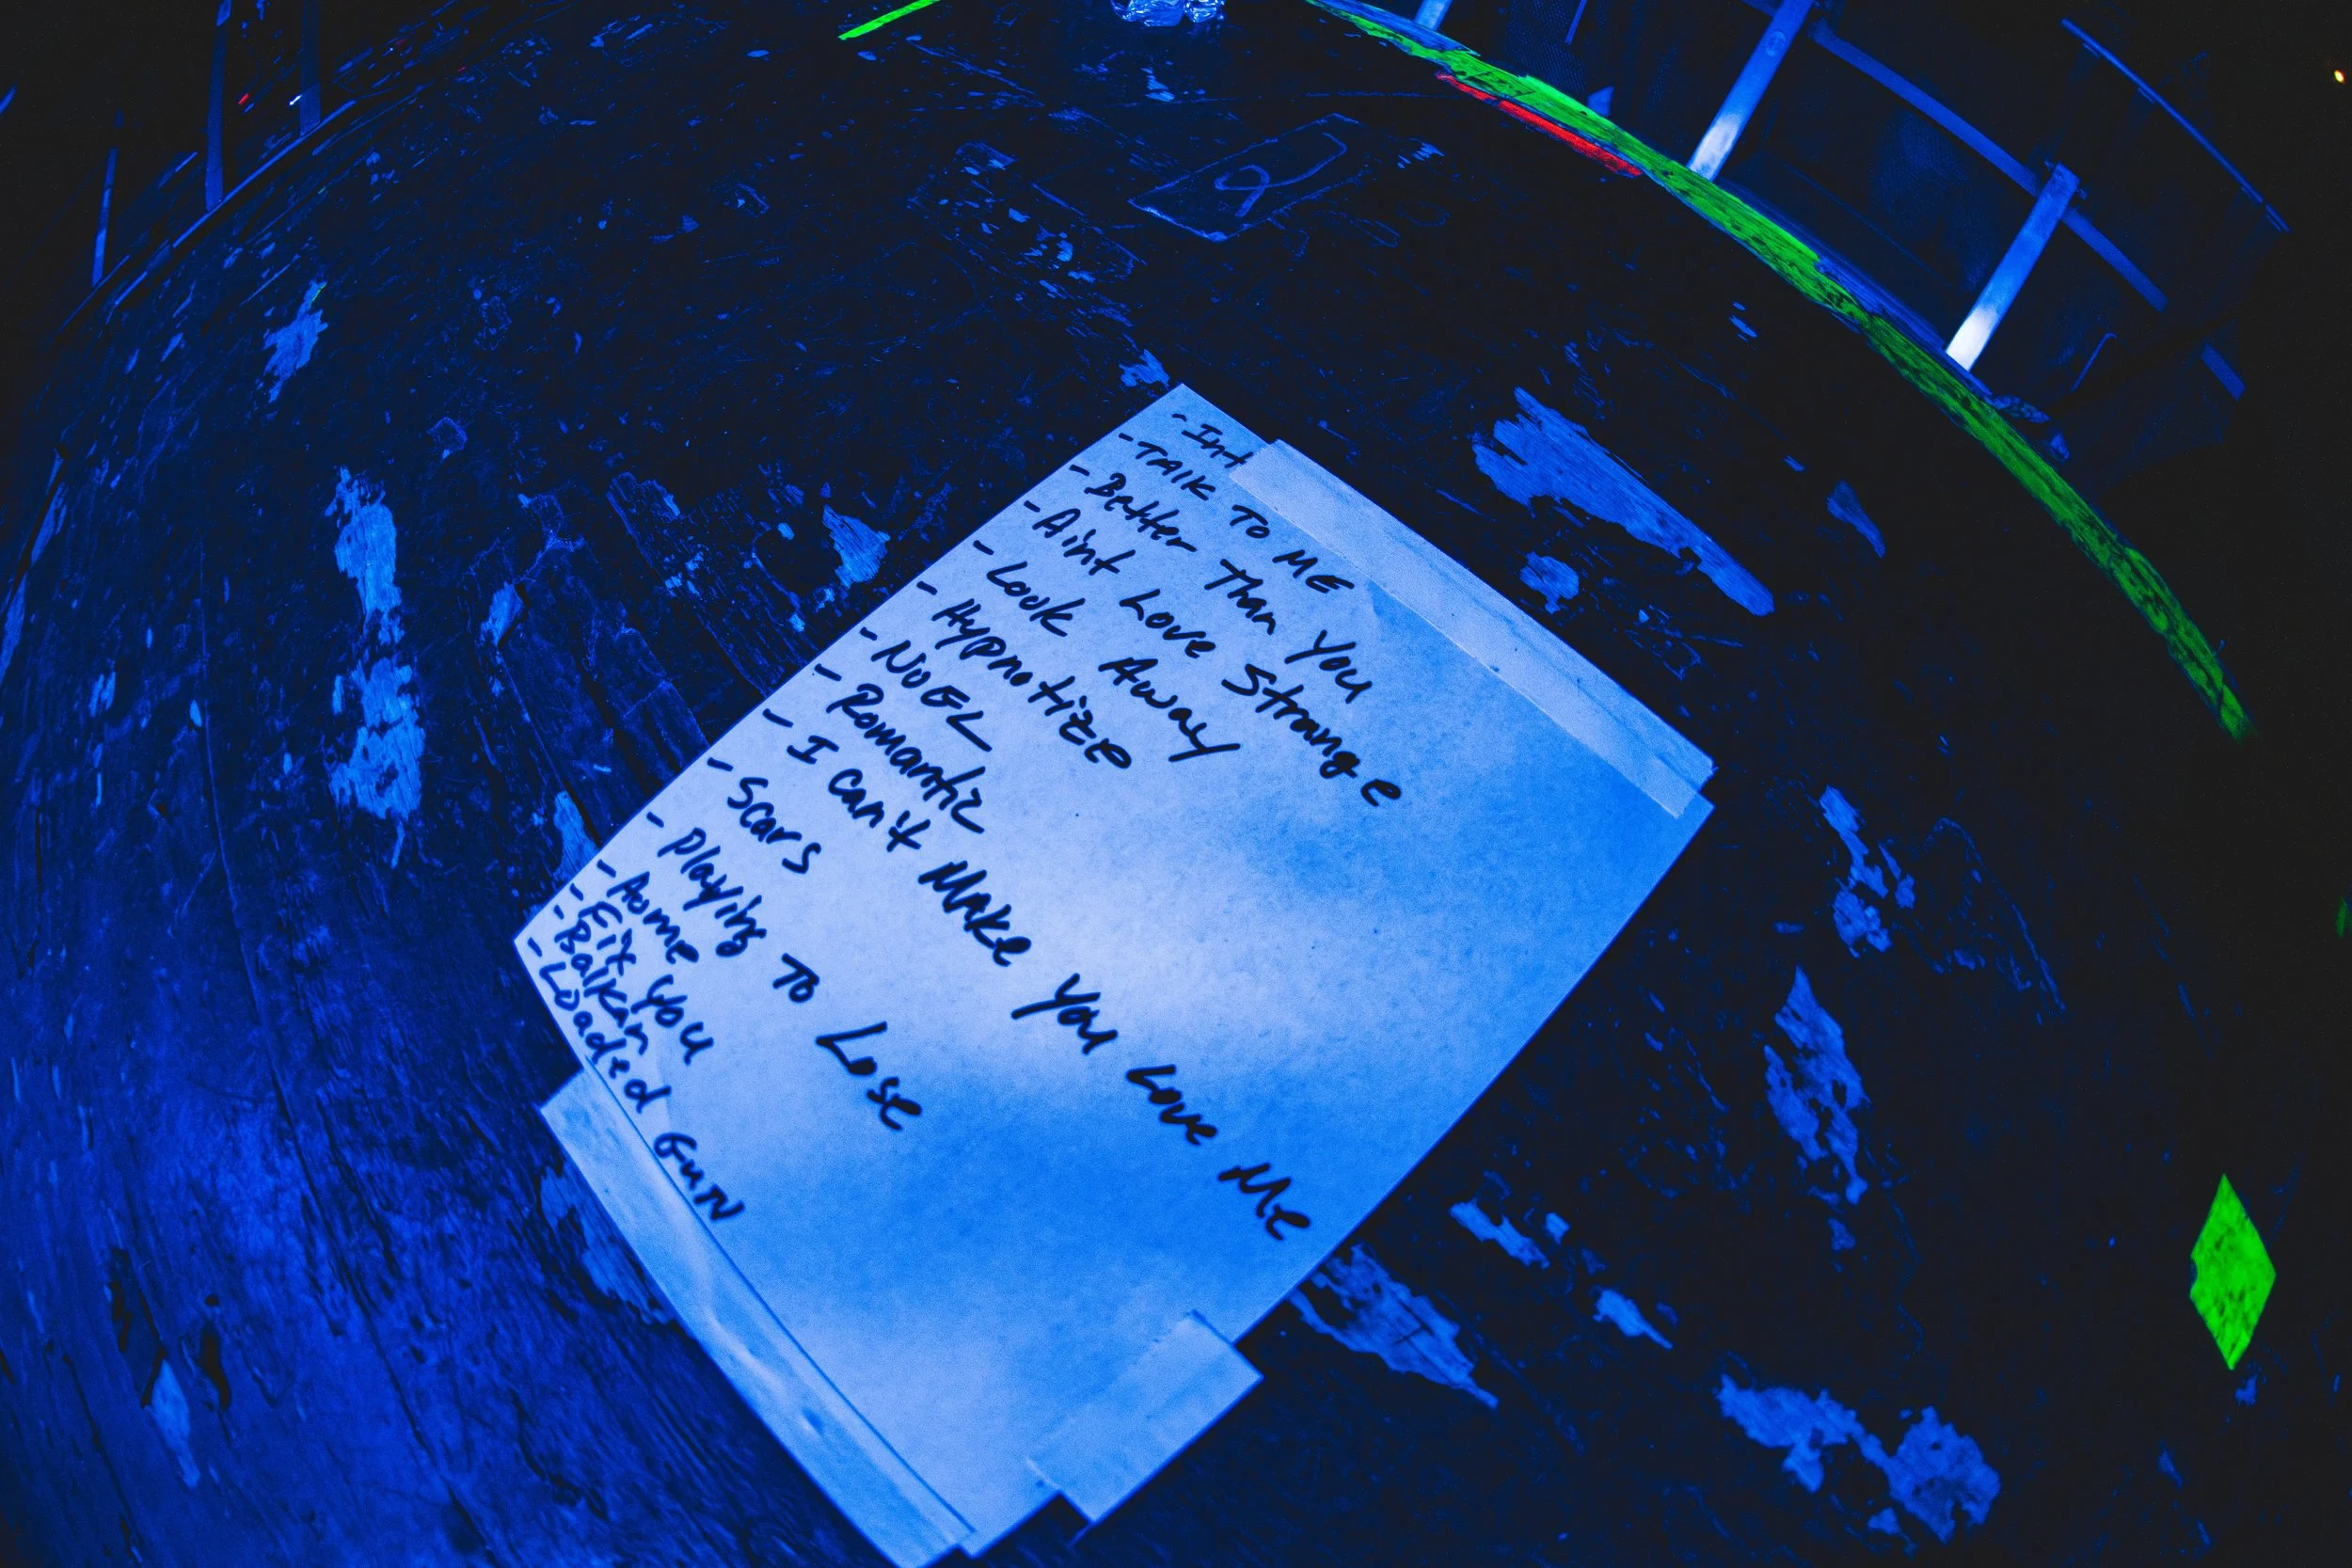 - Int
- TALK TO ME
- Better Than You
- Aint Love Strange
- Look Away
- Hypnotize
- NOEL
- Romantic
- I can't Make You Love Me
- Scars
- Playing To Lose
- Home
- Fix You
- Balkan
- Loaded Gun